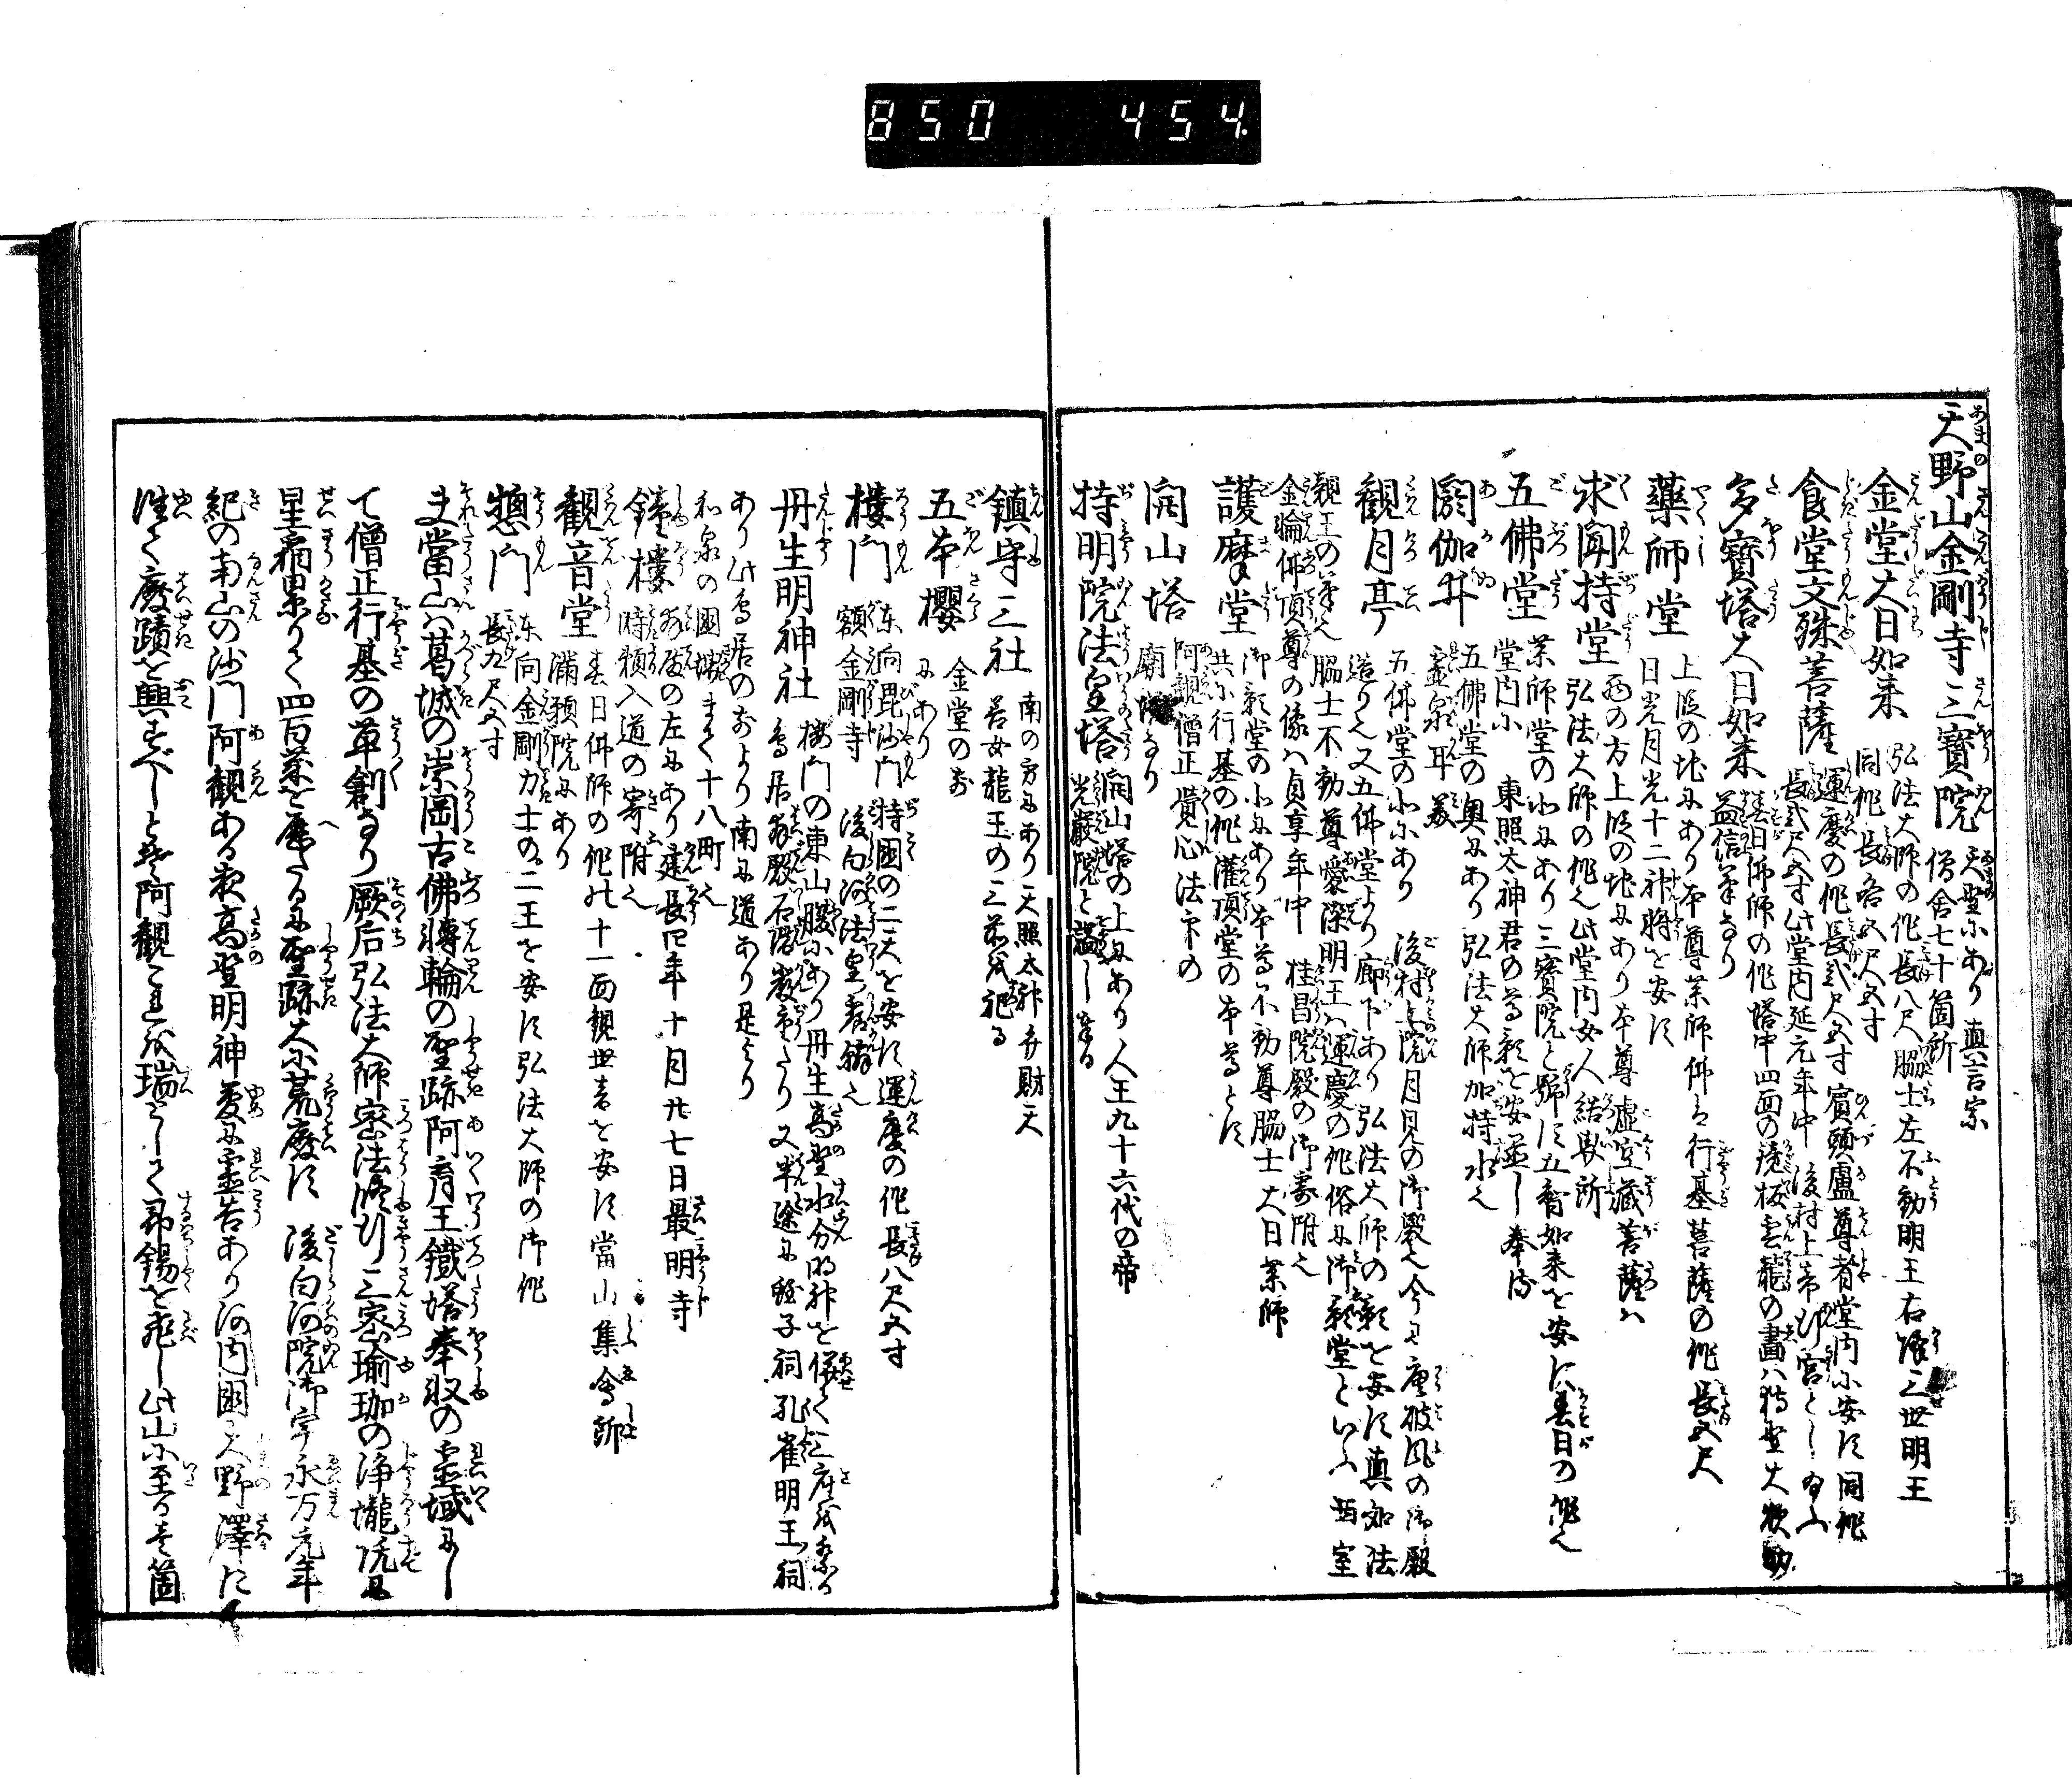 850 454.
天野山金剛寺三寳院 天野にあり真言宗
僧舎七十箇所
金堂大日如来 弘法大師の作長八尺脇士左不動明王右降三世明王
同作長各五尺五寸
食堂文殊菩薩 運慶の作長弐尺五寸賓頭盧尊者堂内に安ず同作
長弐尺五寸此堂内延元年中後村上帝行宮とし給ふ
多寳塔大日如来 春日佛師の作塔中四面の
益信筆なり
藥師堂 上段の地にあり本尊薬師佛は行基菩薩の作長五尺
日光月光十二神将を安ず
求聞持堂 西の方上段の地にあり本尊虚空蔵菩薩は
弘法大師の作也此堂内女人結界所
五佛堂 薬師堂の北にあり三寳院と號ず五智如来を安ず春日の作也
堂内に 東照太神君の尊影を安置し奉る
閼伽井 五佛堂の奥にあり弘法大師加持水也
霊泉耳
観月亭 五佛堂の北にあり 後村上院月見の御殿也今は唐破風の御殿
造り也又五佛堂より廊下あり弘法大師の影を安ず真如法
親王の筆也脇士不動尊愛染明王は運慶の作俗に御影堂といふ西室
金輪佛頂尊の像は貞享年中 桂昌院殿の御寄附也
護摩堂 御影堂の北にあり本尊不動尊脇士大日薬師
共に行基の作灌頂堂の本尊とす
開山塔 阿観僧正覚心法印の
廟なり
持明院法皇塔 開山塔の上にあり人王九十六代の帝
光嚴院と諡し奉る
鎮守三社 南の方にあり天照太神弁財天
善女龍王の三前を祀る
五本櫻 金堂の前
にあり
樓門 東向毘沙門持國の二天を安ず運慶の作長八尺五寸
額金剛寺 後白河法皇宸翰也
丹生明神社 樓門の東山腹にあり丹生高野水分明神を併て三座を祭る
鳥居拝殿石階巌重たり又半途に蛭子祠孔雀明王祠
あり此鳥居の前より南に道あり是より
和泉の國堺まで十八町也
鐘樓 拝殿の左にあり建長四年十月廿七日最明寺
時頼入道の寄附也
觀音堂 春日佛師の作十一面観世音を安ず當山集會所
満願院にあり
惣門 東向金剛力士の二王を安ず弘法大師の御作
長九尺五寸
夫當山は葛城の崇岡古佛轉輪の聖跡阿育王鐵塔奉収の霊域にし
て僧正行基の草創なり厥后弘法大師密法修行三密瑜珈の浄壠既に
星霜累りて四百策を歴たるに聖跡大に荒廢ず 後白河院御宇永万元年
紀の南山の沙門阿觀ある夜高野明神夢に霊告あり河内國天野澤に
往て廢蹟を興すべしと是阿觀これを瑞として錫を飛し此山に至るに壱箇